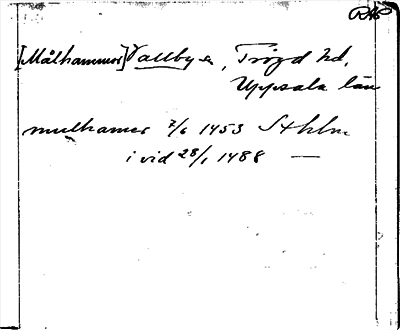 RAP
[Målhammar] Vallby sn, Trögd hd,
Uppsala län
mulhamer 7/6 1453 Sthlm
i vid 28/1 1488 —